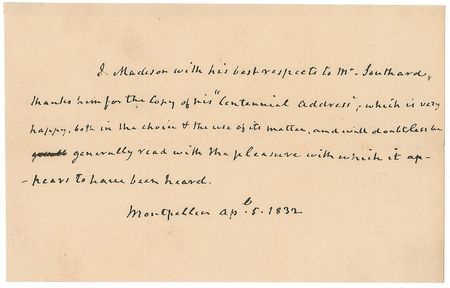 J. Madison with his best respects to Mr. Southard,
thanks him for the Copy of his "Centennial Address", which is very
happy, both in the choice & the use of its matter, and will doubtless be
generally read with the pleasure with which it ap-
-pears to have been heard.
Montpellier Apl. 5. 1832